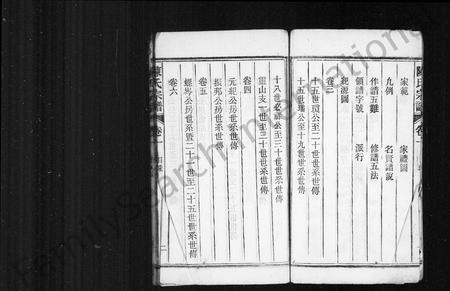 陳氏宗譜
卷一
家範 家禮圖
凡例 名賢譜說
作譜五難 修譜五法
領譜字號 派行
卷二
總源圖
十五世瓊公至二十世世系世傳
十五世瑞公至十九世世系世傳
卷三
十八世必祥公至三十世世系世傳
靈山支二世至二十世世系世傳
卷四
元祀公房世系世傳
振邦公房世系世傳
卷五
蝶岑公房世系暨二十一世至二十五世世系世傳
卷六
陳氏宗譜
卷一
目錄
二
FamilySearch International